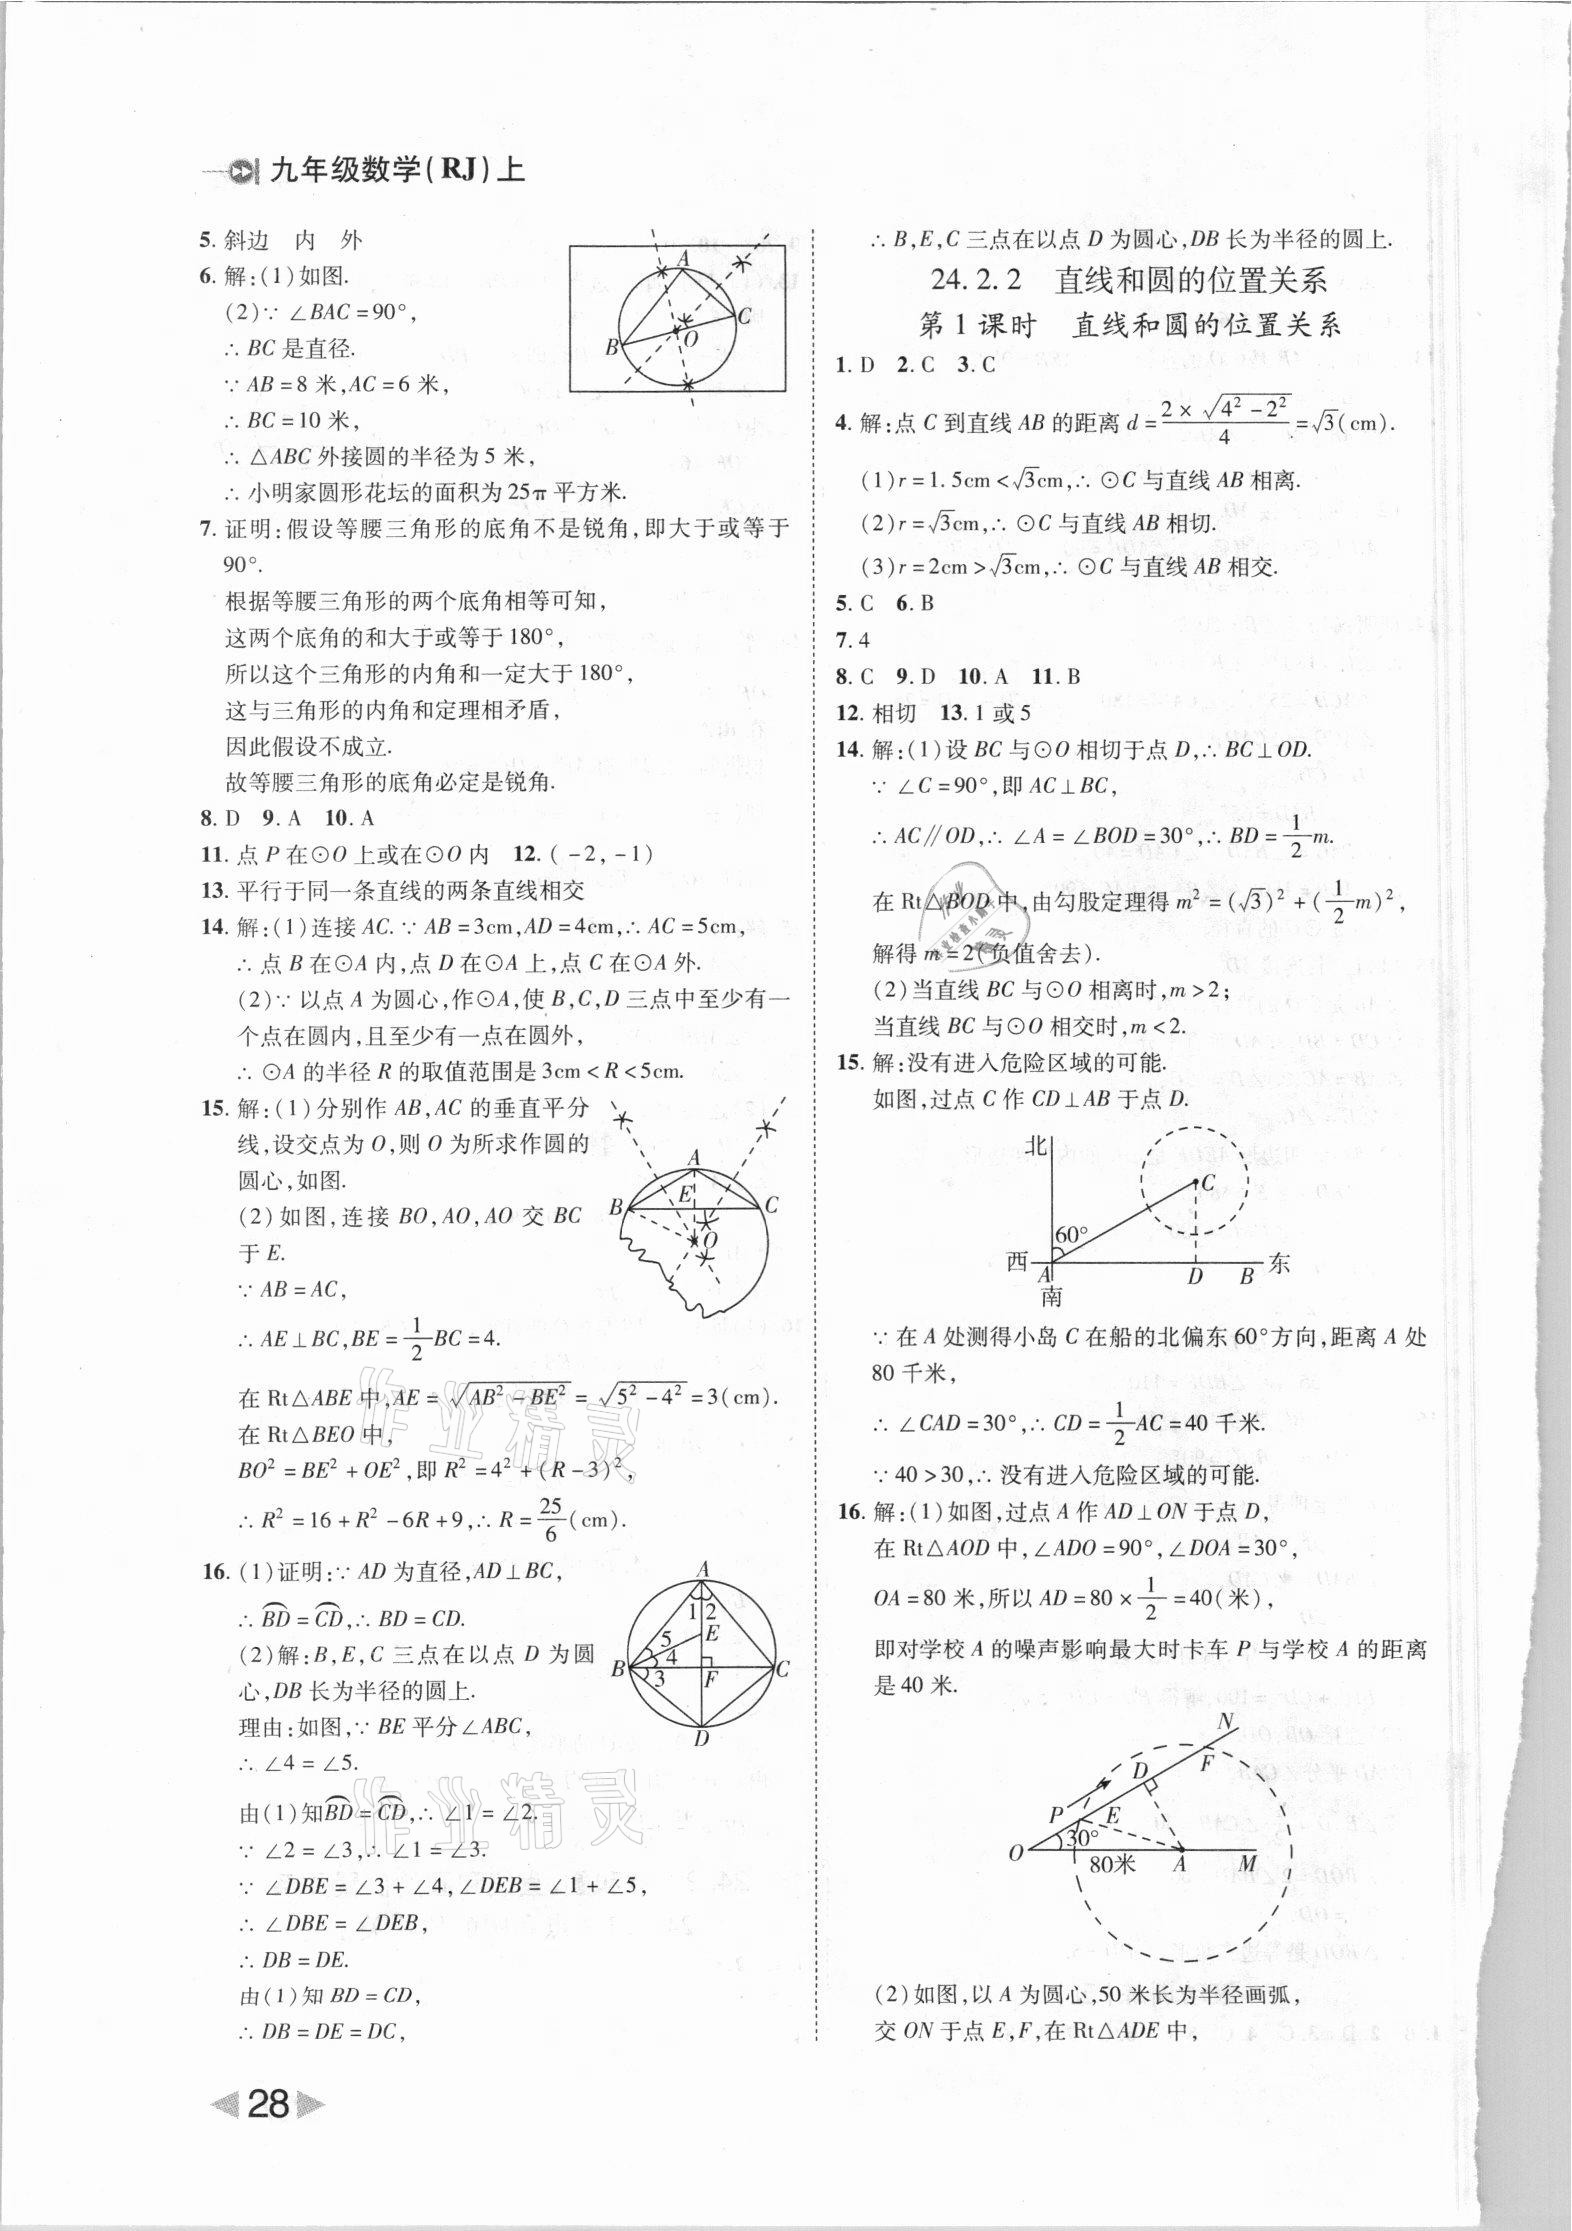 九年级数学(RJ)上
5. 斜边 内 外
6. 解:(1)如图.
(2)∵ ∠BAC=90°,
∴ BC 是直径.
∵ AB=8 米,AC=6 米,
∴ BC=10 米,
∴ △ABC 外接圆的半径为 5 米,
∴ 小明家圆形花坛的面积为 25π 平方米.
A
B
C
O
7. 证明:假设等腰三角形的底角不是锐角,即大于或等于
90°.
根据等腰三角形的两个底角相等可知,
这两个底角的和大于或等于 180°,
所以这个三角形的内角和一定大于 180°,
这与三角形的内角和定理相矛盾,
因此假设不成立.
故等腰三角形的底角必定是锐角.
8. D 9. A 10. A
11. 点 P 在⊙O 上或在⊙O 内 12. (-2,-1)
13. 平行于同一条直线的两条直线相交
14. 解:(1)连接 AC. ∵ AB=3cm,AD=4cm,∴ AC=5cm,
∴ 点 B 在⊙A 内,点 D 在⊙A 上,点 C 在⊙A 外.
(2)∵ 以点 A 为圆心,作⊙A,使 B,C,D 三点中至少有一
个点在圆内,且至少有一点在圆外,
∴ ⊙A 的半径 R 的取值范围是 3cm<R<5cm.
15. 解:(1)分别作 AB,AC 的垂直平分
线,设交点为 O,则 O 为所求作圆的
圆心,如图.
(2)如图,连接 BO,AO,AO 交 BC
于 E.
∵ AB=AC,
∴ AE⊥BC,BE=1/2BC=4.
A
E
B
C
O
在 Rt△ABE 中,AE=√(AB²-BE²)=√(5²-4²)=3(cm).
在 Rt△BEO 中,
BO²=BE²+OE²,即 R²=4²+(R-3)²,
∴ R²=16+R²-6R+9,∴ R=25/6(cm).
16. (1)证明:∵ AD 为直径,AD⊥BC,
∴ B͡D=C͡D,∴ BD=CD.
(2)解:B,E,C 三点在以点 D 为圆
心,DB 长为半径的圆上.
理由:如图,∵ BE 平分∠ABC,
∴ ∠4=∠5.
A
1 2
5 E
4
B C
3 F
D
由(1)知B͡D=C͡D,∴ ∠1=∠2.
∵ ∠2=∠3,∴ ∠1=∠3.
∵ ∠DBE=∠3+∠4,∠DEB=∠1+∠5,
∴ ∠DBE=∠DEB,
∴ DB=DE.
由(1)知 BD=CD,
∴ DB=DE=DC,
∴ B,E,C 三点在以点 D 为圆心,DB 长为半径的圆上.
24.2.2 直线和圆的位置关系
第 1 课时 直线和圆的位置关系
1. D 2. C 3. C
4. 解:点 C 到直线 AB 的距离 d=2×√(4²-2²)/4=√3(cm).
(1)r=1.5cm<√3cm,∴ ⊙C 与直线 AB 相离.
(2)r=√3cm,∴ ⊙C 与直线 AB 相切.
(3)r=2cm>√3cm,∴ ⊙C 与直线 AB 相交.
5. C 6. B
7. 4
8. C 9. D 10. A 11. B
12. 相切 13. 1 或 5
14. 解:(1)设 BC 与⊙O 相切于点 D,∴ BC⊥OD.
∵ ∠C=90°,即 AC⊥BC,
∴ AC∥OD,∴ ∠A=∠BOD=30°,∴ BD=1/2m.
在 Rt△BOD 中,由勾股定理得 m²=(√3)²+(1/2m)²,
解得 m=2(负值舍去).
(2)当直线 BC 与⊙O 相离时,m>2;
当直线 BC 与⊙O 相交时,m<2.
15. 解:没有进入危险区域的可能.
如图,过点 C 作 CD⊥AB 于点 D.
北
C
60°
西 A D B 东
南
∵ 在 A 处测得小岛 C 在船的北偏东 60°方向,距离 A 处
80 千米,
∴ ∠CAD=30°,∴ CD=1/2AC=40 千米.
∵ 40>30,∴ 没有进入危险区域的可能.
16. 解:(1)如图,过点 A 作 AD⊥ON 于点 D,
在 Rt△AOD 中,∠ADO=90°,∠DOA=30°,
OA=80 米,所以 AD=80×1/2=40(米),
即对学校 A 的噪声影响最大时卡车 P 与学校 A 的距离
是 40 米.
N
D F
P E
O 30°
80米 A M
(2)如图,以 A 为圆心,50 米长为半径画弧,
交 ON 于点 E,F,在 Rt△ADE 中,
28
作业精灵
作业精灵